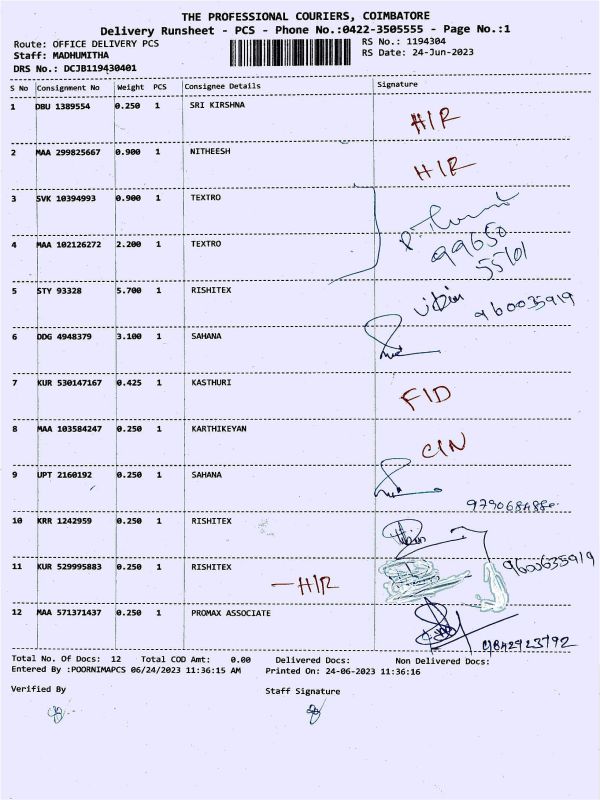 THE PROFESSIONAL COURIERS, COIMBATORE
Delivery Runsheet - PCS - Phone No.:0422-3505555 - Page No.:1
Route: OFFICE DELIVERY PCS RS No.: 1194304
Staff: MADHUMITHA RS Date: 24-Jun-2023
DRS No.: DCJB119430401
S No Consignment No Weight PCS Consignee Details Signature
1 DBU 1389554 0.250 1 SRI KIRSHNA H/R
2 MAA 299825667 0.900 1 NITHEESH H/R
3 SVK 10394993 0.900 1 TEXTRO
99650
4 MAA 102126272 2.200 1 TEXTRO 55101
5 STY 93328 5.700 1 RISHITEX 9600035919
6 DDG 4948379 3.100 1 SAHANA
7 KUR 530147167 0.425 1 KASTHURI FID
8 MAA 103584247 0.250 1 KARTHIKEYAN CIN
9 UPT 2160192 0.250 1 SAHANA
10 KRR 1242959 0.250 1 RISHITEX
11 KUR 529995883 0.250 1 RISHITEX - H/R 9600635919
12 MAA 571371437 0.250 1 PROMAX ASSOCIATE 9842923792
Total No. Of Docs: 12 Total COD Amt: 0.00 Delivered Docs: Non Delivered Docs:
Entered By :POORNIMAPCS 06/24/2023 11:36:15 AM Printed On: 24-06-2023 11:36:16
Verified By Staff Signature